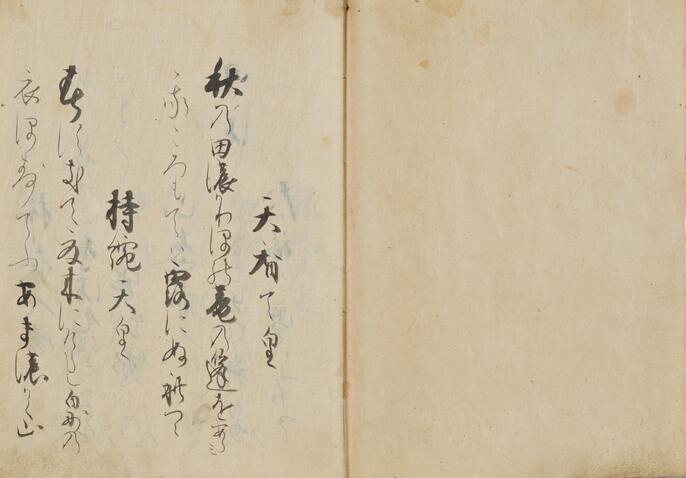 天智天皇
秋の田濃かりほ能庵の篷をあらみ
我ころもては露にぬれつゝ
持統天皇
春須起て夏来にけらし白妙の
衣ほすてふあま濃かく山